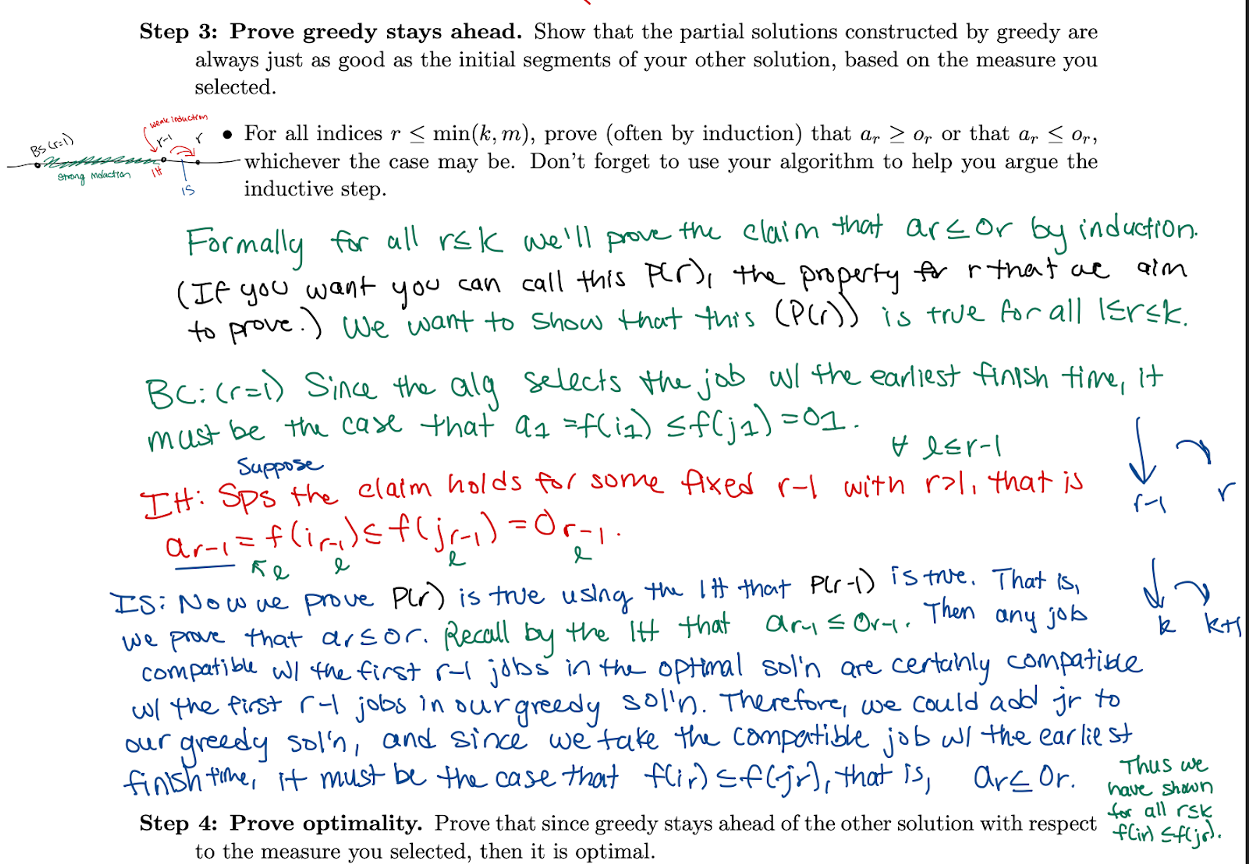 Step 3: Prove greedy stays ahead. Show that the partial solutions constructed by greedy are
always just as good as the initial segments of your other solution, based on the measure you
selected.
weak induction
BS (r=1)
r-1
r
strong induction
IH
IS
• For all indices r ≤ min(k, m), prove (often by induction) that aᵣ ≥ oᵣ or that aᵣ ≤ oᵣ,
whichever the case may be. Don't forget to use your algorithm to help you argue the
inductive step.
Formally for all r≤k we'll prove the claim that ar≤Or by induction.
(If you want you can call this P(r), the property for r that we aim
to prove.) We want to show that this (P(r)) is true for all 1≤r≤k.
BC: (r=1) Since the alg selects the job w/ the earliest finish time, it
must be the case that a1 =f(i1) ≤f(j1)=O1.
∀ l≤r-1
Suppose
IH: Sps the claim holds for some fixed r-1 with r>1, that is
ar-1 = f(ir-1) ≤ f(jr-1) = Or-1.
l l l l
r-1 r
IS: Now we prove P(r) is true using the IH that P(r-1) is true. That is,
we prove that ar≤or. Recall by the IH that ar-1 ≤ Or-1. Then any job
k k+1
compatible w/ the first r-1 jobs in the optimal sol'n are certainly compatible
w/ the first r-1 jobs in our greedy sol'n. Therefore, we could add jr to
our greedy sol'n, and since we take the compatible job w/ the earliest
finish time, it must be the case that f(ir) ≤f(jr), that is, ar≤ Or.
Thus we
have shown
for all r≤k
f(ir) ≤f(jr).
Step 4: Prove optimality. Prove that since greedy stays ahead of the other solution with respect
to the measure you selected, then it is optimal.